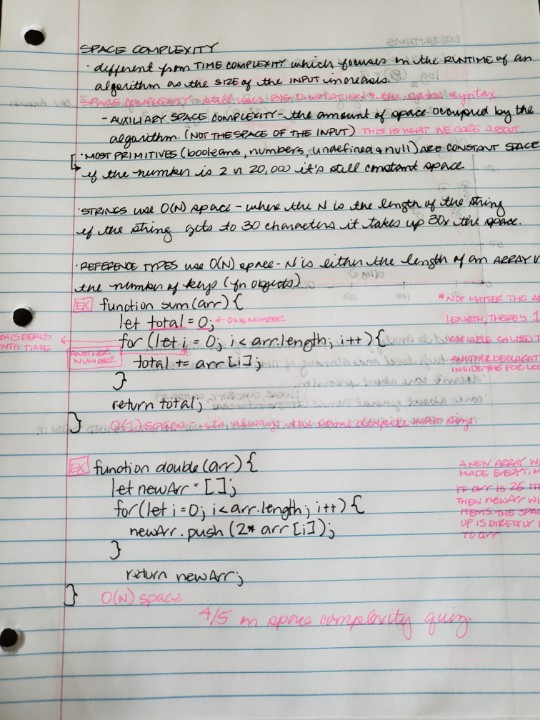 SPACE COMPLEXITY
· different from TIME COMPLEXITY which focuses on the RUNTIME of an
algorithm as the SIZE of the INPUT increases.
SPACE COMPLEXITY
- AUXILIARY SPACE COMPLEXITY - the amount of space occupied by the
algorithm (NOT THE SPACE OF THE INPUT) THIS IS WHAT WE CARE ABOUT
· MOST PRIMITIVES (booleans, numbers, undefined & null) ARE CONSTANT SPACE
if the number is 2 or 20,000 it's still constant space.
· STRINGS use O(N) space - where the N is the length of the string
if the string gets to 30 characters it takes up 30x the space.
· REFERENCE TYPES use O(N) space - N is either the length of an ARRAY
the number of keys (in objects)
EX function sum(arr) {
* NOT MATTER THE
let total = 0; ← ONE NUMBER
LENGTH, THERE'S 1
WITH TIME
for (let i = 0; i < arr.length; i++) {
VARIABLE CALLED
ANOTHER NUMBER
total += arr[i];
INSIDE THE FOR
}
return total;
}
O(1) space
EX function double(arr) {
A NEW ARRAY
let newArr = [];
MADE
for(let i = 0; i < arr.length; i++) {
IF arr is 25
THEN newArr
newArr.push(2* arr[i]);
ITEMS. THE
UP IS DIRECTLY
}
TO arr
return newArr;
}
O(N) space
4/5 on space complexity quiz